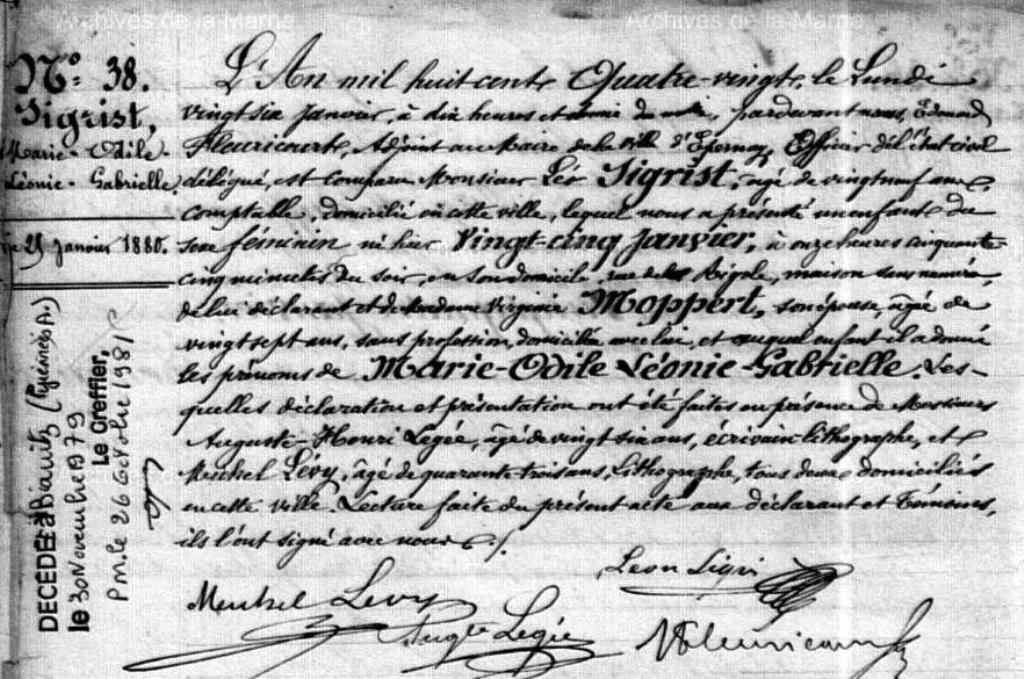 Archives de la Marne
Archives de la Marne
No. 38.
Sigrist,
Marie-Odile-
Léonie-Gabrielle.
25 Janvier 1880.
DECEDEE à Biarritz (Pyrénées A.)
le 30 Novembre 1979
Le Greffier,
P. m. le 26 Octobre 1981
L'An mil huit cent Quatre-vingt, le Lundi
vingt six Janvier, à dix heures et demie du matin, pardevant nous, Edmond
Fleuricourt, Adjoint au Maire de la ville d'Epernay, Officier de l'état civil
délégué, est comparu Monsieur Léon Sigrist, âgé de vingt neuf ans,
Comptable, domicilié en cette ville, lequel nous a présenté un enfant du
sexe féminin né hier Vingt-cinq Janvier, à onze heures cinquante-
cinq minutes du soir, en son domicile, rue de la Rigole, maison sans numéro,
de lui déclarant et de Madame Virginie Moppert, son épouse, âgée de
vingt sept ans, sans profession, domiciliée avec lui, et auquel enfant il a donné
les prénoms de Marie-Odile Léonie-Gabrielle. Les-
quelles déclaration et présentation ont été faites en présence de Messieurs
Auguste-Henri Legée, âgé de vingt six ans, écrivain lithographe, et
Michel Lévy, âgé de quarante trois ans, Lithographe, tous deux domiciliés
en cette ville. Lecture faite du présent acte aux déclarant et Témoins,
ils l'ont signé avec nous ./.
Léon Sigri
Michel Levy
Augte Legée
Fleuricourt